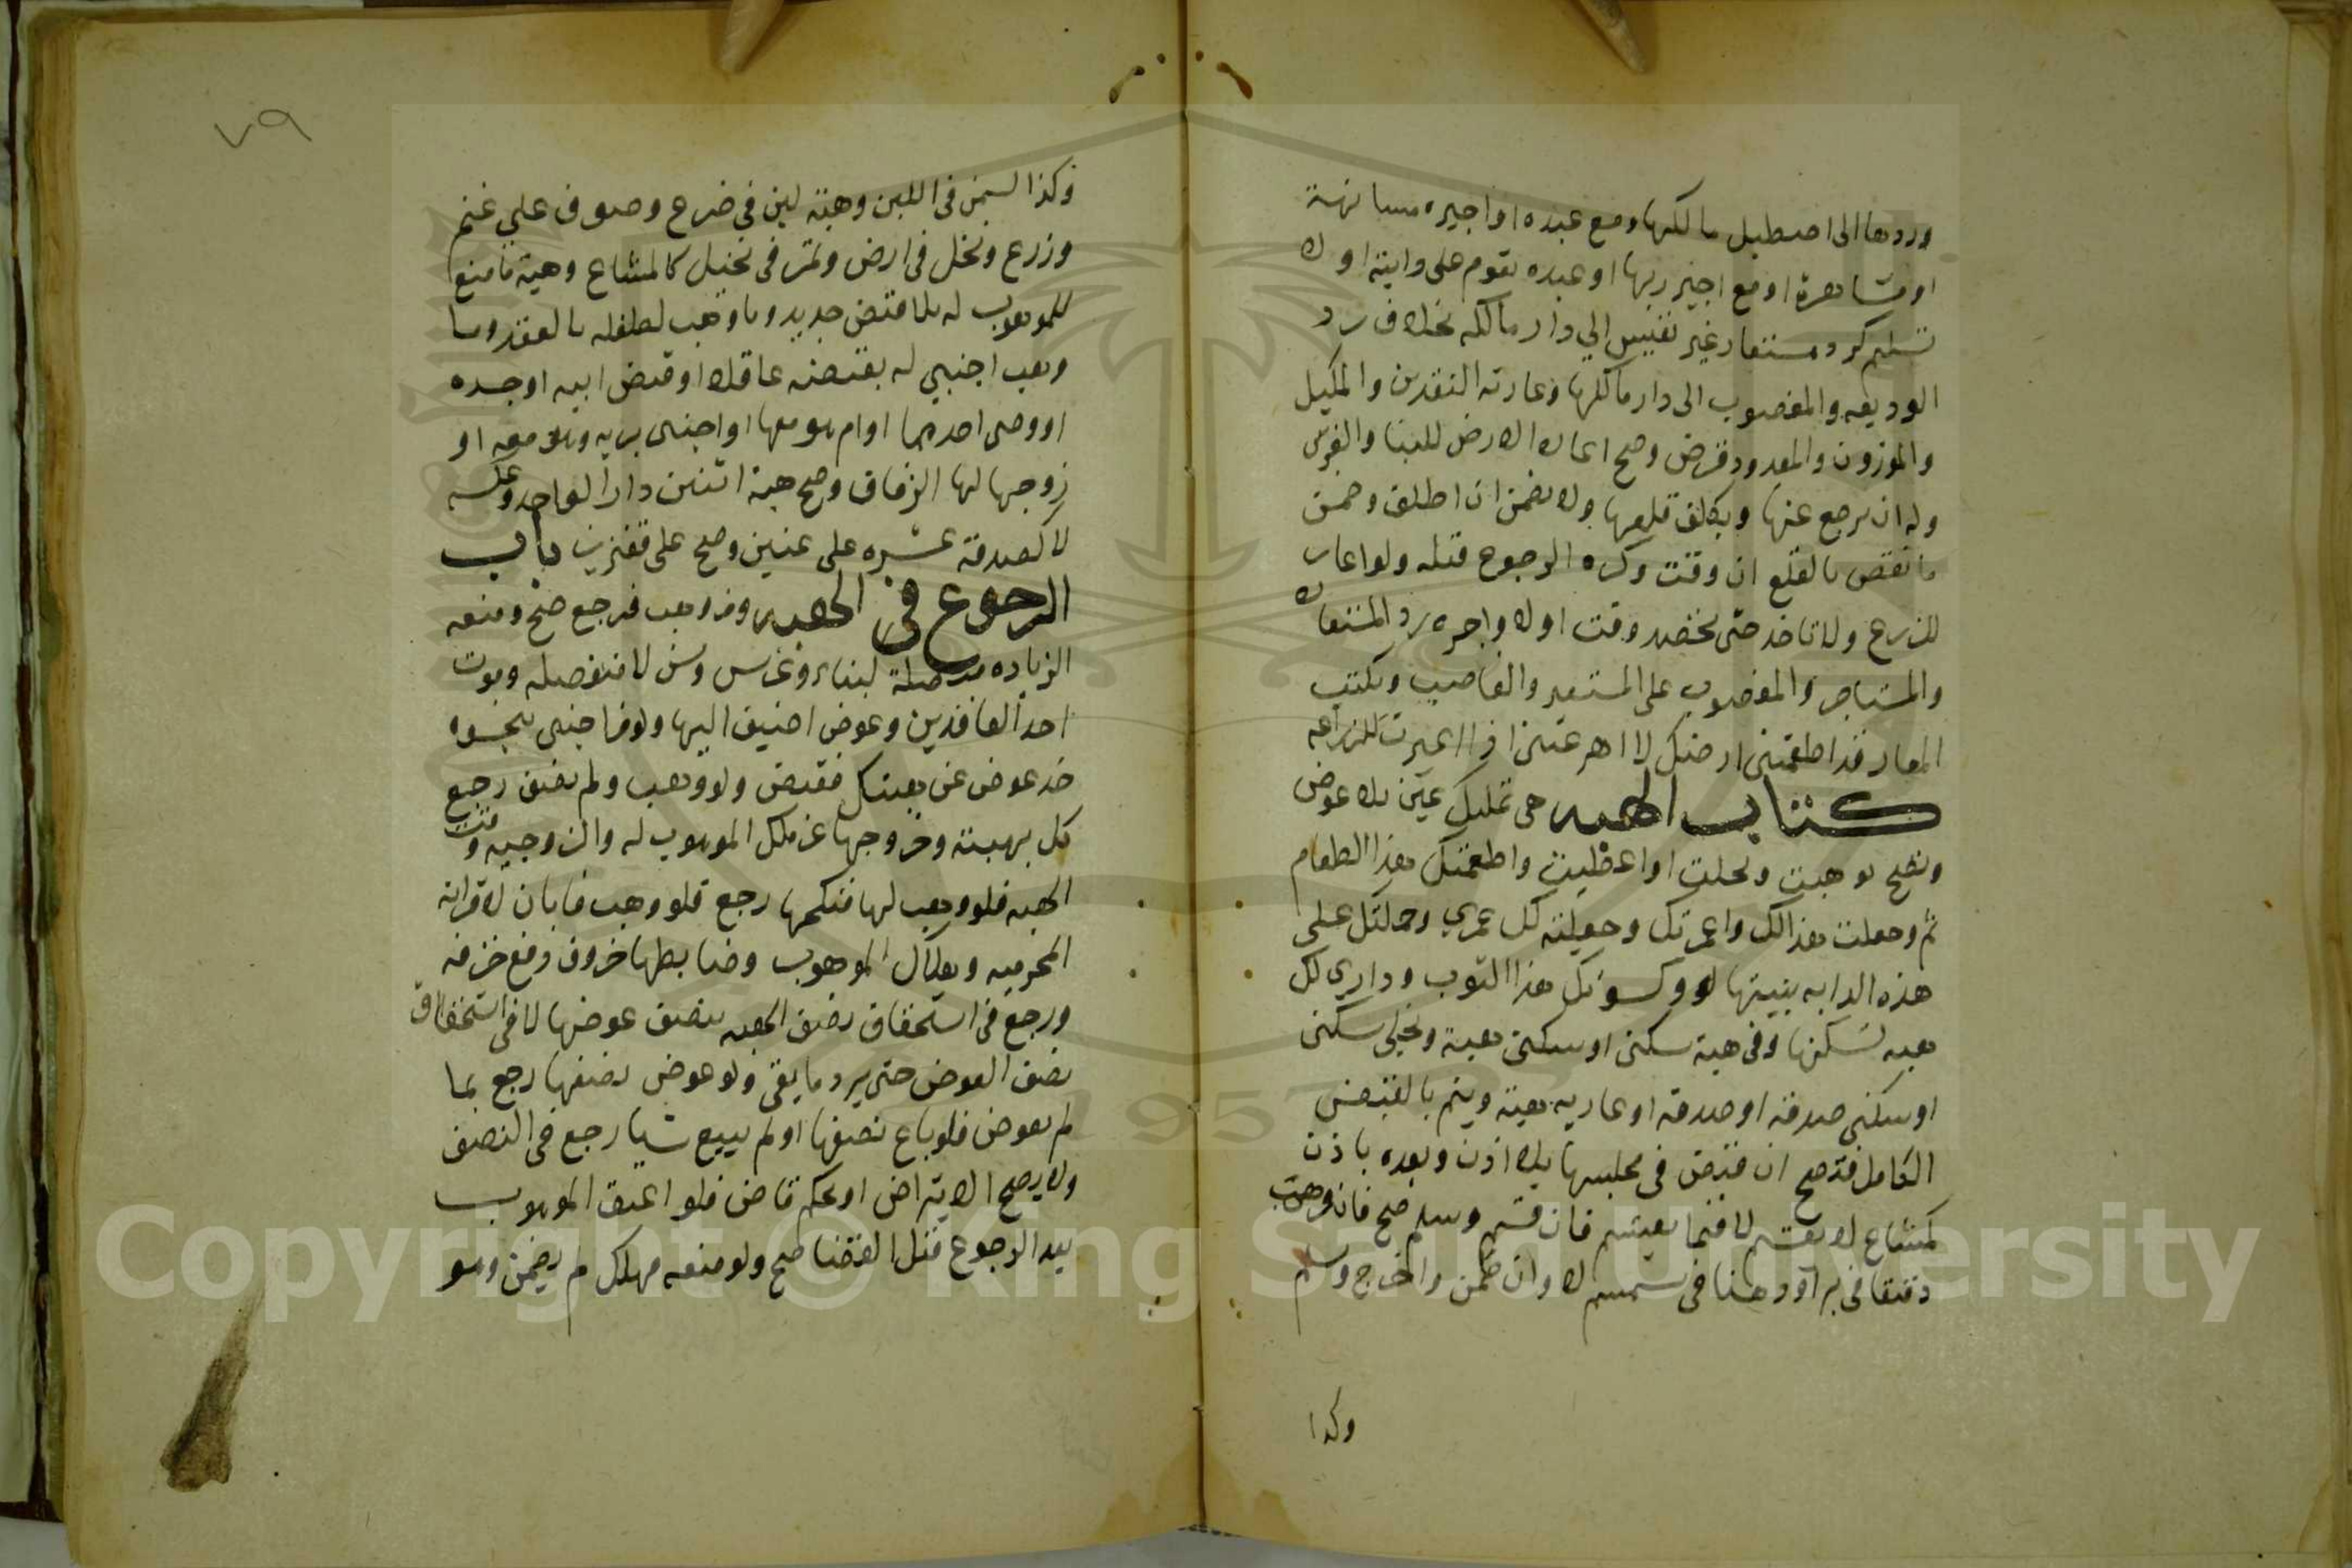 وردها الى اصطبل مالكها ومع عبده او اجيره مسانهة
او مشاهرة او مع اجير ربها او عبده يقوم على دابته اولا
تسليم كرد مستعار غير نفيس الي دار مالكه بخلاف رد
الوديعه والمغصوب الى دار مالكها وعارته النقدين والمكيل
والموزون والمعدود قرض وصح اعاره الارض للبنا والغرس
وله ان يرجع عنها ويكلف قلعها ولا يضمن ان اطلق وضمن
ما نقص بالقلع ان وقت وكره الرجوع قبله ولو اعار
للزرع ولا تاخذ حتى يحصد وقت اولا واجره رد المستعار
والمستاجر والمغصوب على المستعير والغاصب ويكتب
المعار قد اطعمتنى ارضك لا اعرتنى اذا اعيرت للزراعه
كتاب الهبه هى تمليك عين بلا عوض
وتصح بوهبت ونحلت او اعطيت واطعمتك هذا الطعام
ثم وجعلت هذا لك واعمرتك وجعلته لك عمري وحملتك على
هذه الدابه بنيتها لو وكسوتك هذا الثوب وداري لك
هبه تسكنها وفى هبة سكنى او سكنى هبة ونحلى سكنى
او سكنى صدقه او صدقه او عاريه هبة ويتم بالقبض
الكامل فتصح ان قبض فى مجلسها بلا اذن وبعده باذن
كمشاع لا يقسم لا فيما يقسم فان قسم وسلم صح فان وهب
دقيقا فى بر او دهنا فى سمسم لا وان طحن واخرج وسلم
وكذا
٧٩
وكذا السمن فى اللبن وهبة لبن فى ضرع وصوف علي غنم
وزرع ونخل فى ارض وتمر فى نخيل كالمشاع وهبة ما مع
للموهوب له بلا قبض جديد وما وهب لطفله بالعقد وما
وهب اجنبي له بقبضه عاقلا او قبض ابيه او جده
او وصى احدهما او ام هو معها او اجنبى يربيه وهو معه او
زوجها لها الزفاف وصح هبة اثنين دارا لواحد وعكسه
لا كصدقة عشره على غنيين وصح على فقيرين باب
الرجوع فى الهبه ومن وهب فرجع صح ومنعه
الزياده متصلة لبناء وغرس وسمن لا منفصله وموت
احد العاقدين وعوض اضيف اليها ولو من اجنبى بنحو
خذ عوض عن هبتك فقبض ولو وهب ولم يضف رجع
كل بهبته وخروجها عن ملك الموهوب له والزوجيه وقت
الهبه فلو وهب لها فنكحها رجع فلو وهب فابان لا قرابة
المحرميه وهلاك الموهوب وضابطها حروف دمع خزقه
ورجع فى استحقاق نصف الهبه بنصف عوضها لا فى استحقاق
نصف العوض حتى يرد ما بقى ولو عوض نصفها رجع بما
لم يعوض فلو باع نصفها او لم يبيع شيا رجع فى النصف
ولا يصح الا بتراض او بحكم قاض فلو اعتق الموهوب
بعد الرجوع قبل القضا صح ولو منعه فهلك لم يضمن وهو
Copyright © King Saud University